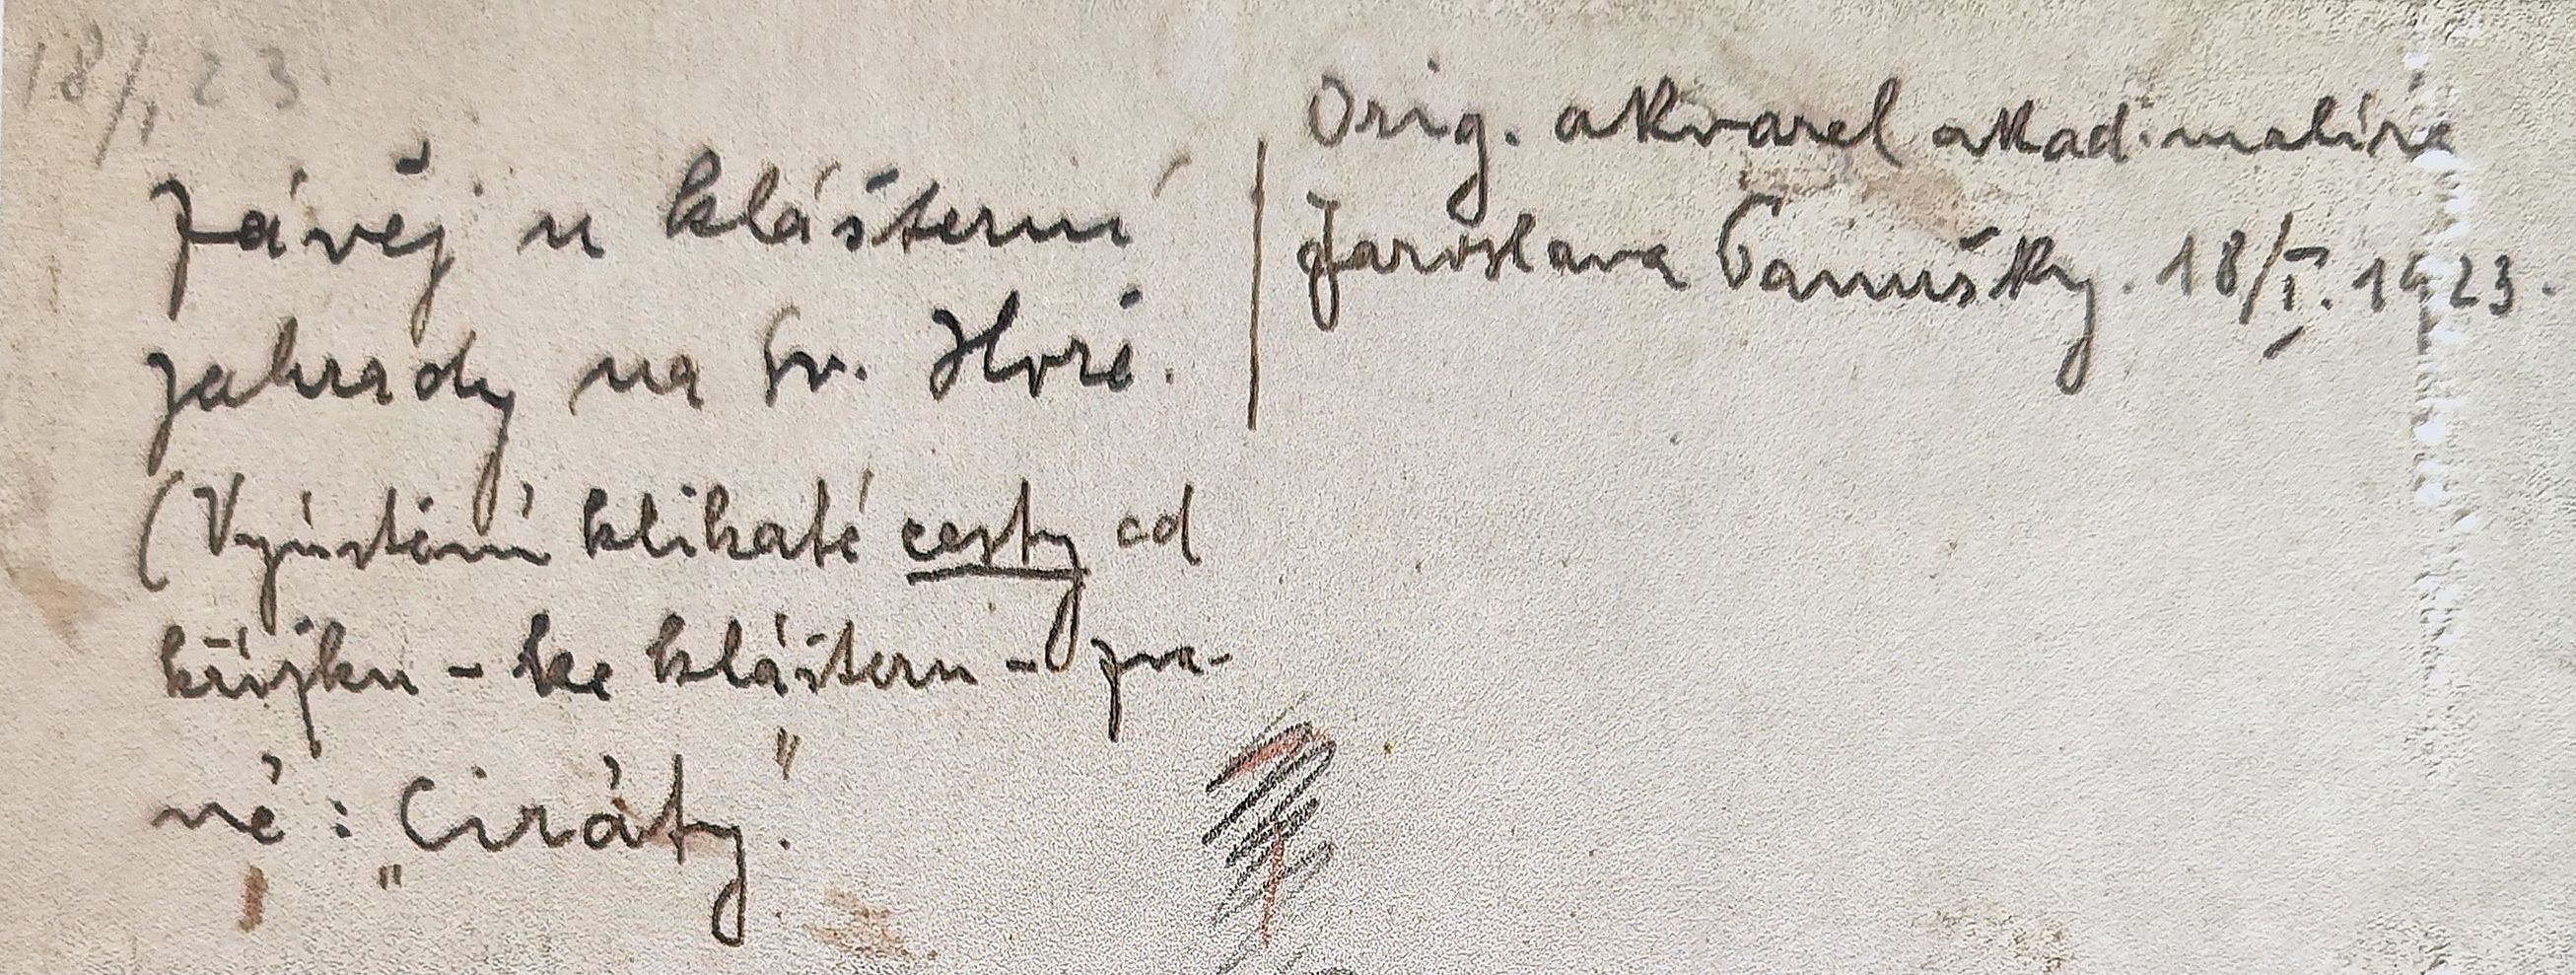 18/1 23.
Závěj u klášterní
zahrady na Sv. Hoře.
(Vyústění klikaté cesty od
křížku - ke klášteru - zva-
né: „Ciráty."
Orig. akvarel akad. malíře
Jaroslava Panušky. 18/I. 1923.